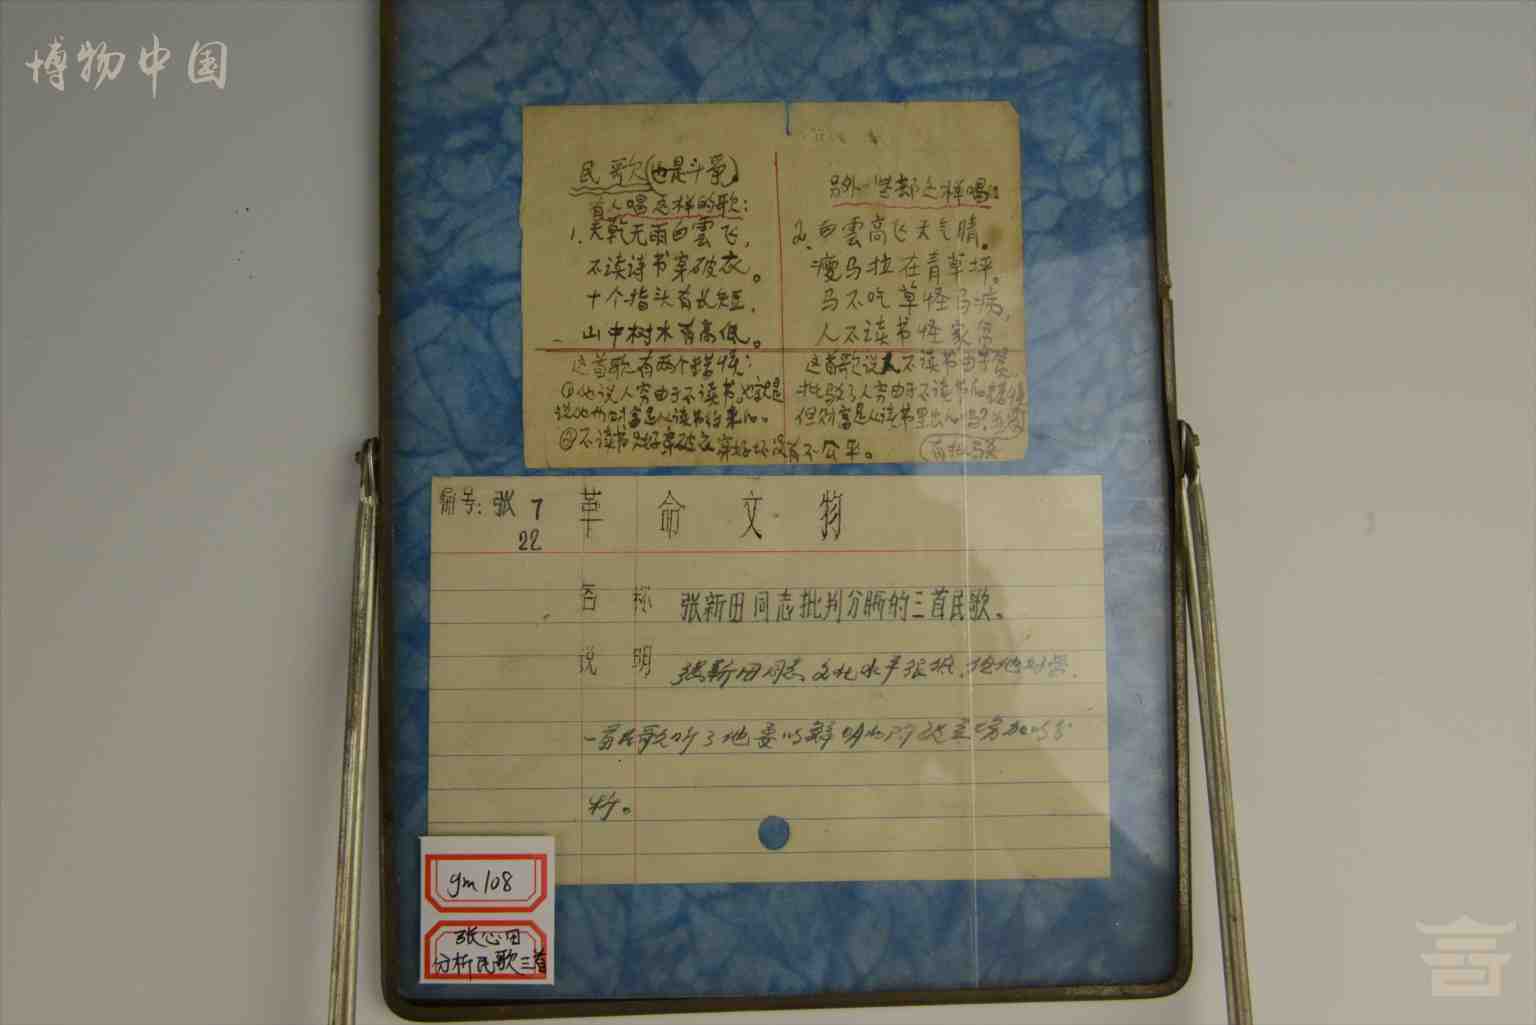 博物中国
民歌(也是斗争)。
有人唱这样的歌:
1.天乾无雨白雲飞,
不读诗书穿破衣。
十个指头有长短,
山中树木有高低。
这首歌有两个错误:
①他说人穷由于不读书,也就是
说他们对富是从读书得来的。
②不读书只好穿破衣穿好坏没有不公平。
另外一些却这样唱:
2、白雲高飞天气晴。
瘦马拉在青草坪。
马不吃草怪马病,
人不读书怪家贫
这首歌说人不读书由于贫
批驳了人穷由于不读书的错误
但对富是从读书里出的吗?
编号:张 7
22
革命文物
名称 张新田同志批判分晰的三首民歌。
说明 张新田同志文化水平很低,
一首民歌听了地委
析。
gm108
张心田
分析民歌三首